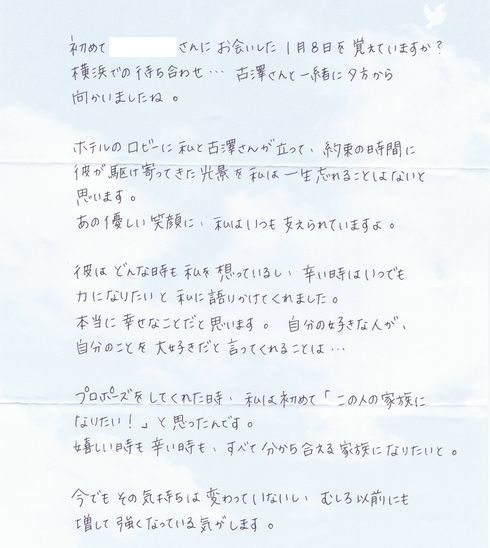 初めて さんに お会いした 1月8日を 覚えていますか?
横浜での待ち合わせ… 古澤さんと一緒に夕方から
向かいましたね。
ホテルのロビーに 私と古澤さんが立って、約束の時間に
彼が駆け寄ってきた光景を 私は一生忘れることはないと
思います。
あの優しい笑顔に、私はいつも支えられていますよ。
彼は どんな時も 私を 想っているし、辛い時はいつでも
力になりたいと 私に語りかけてくれました。
本当に 幸せなことだと思います。 自分の好きな人が、
自分のことを 大好きだと 言ってくれることは…
プロポーズをしてくれた時、私は初めて「この人の家族に
なりたい!」と思ったんです。
嬉しい時も 辛い時も、すべて分から合える家族になりたいと。
今でも その気持ちは 変わっていないし、むしろ以前にも
増して 強くなっている気がします。